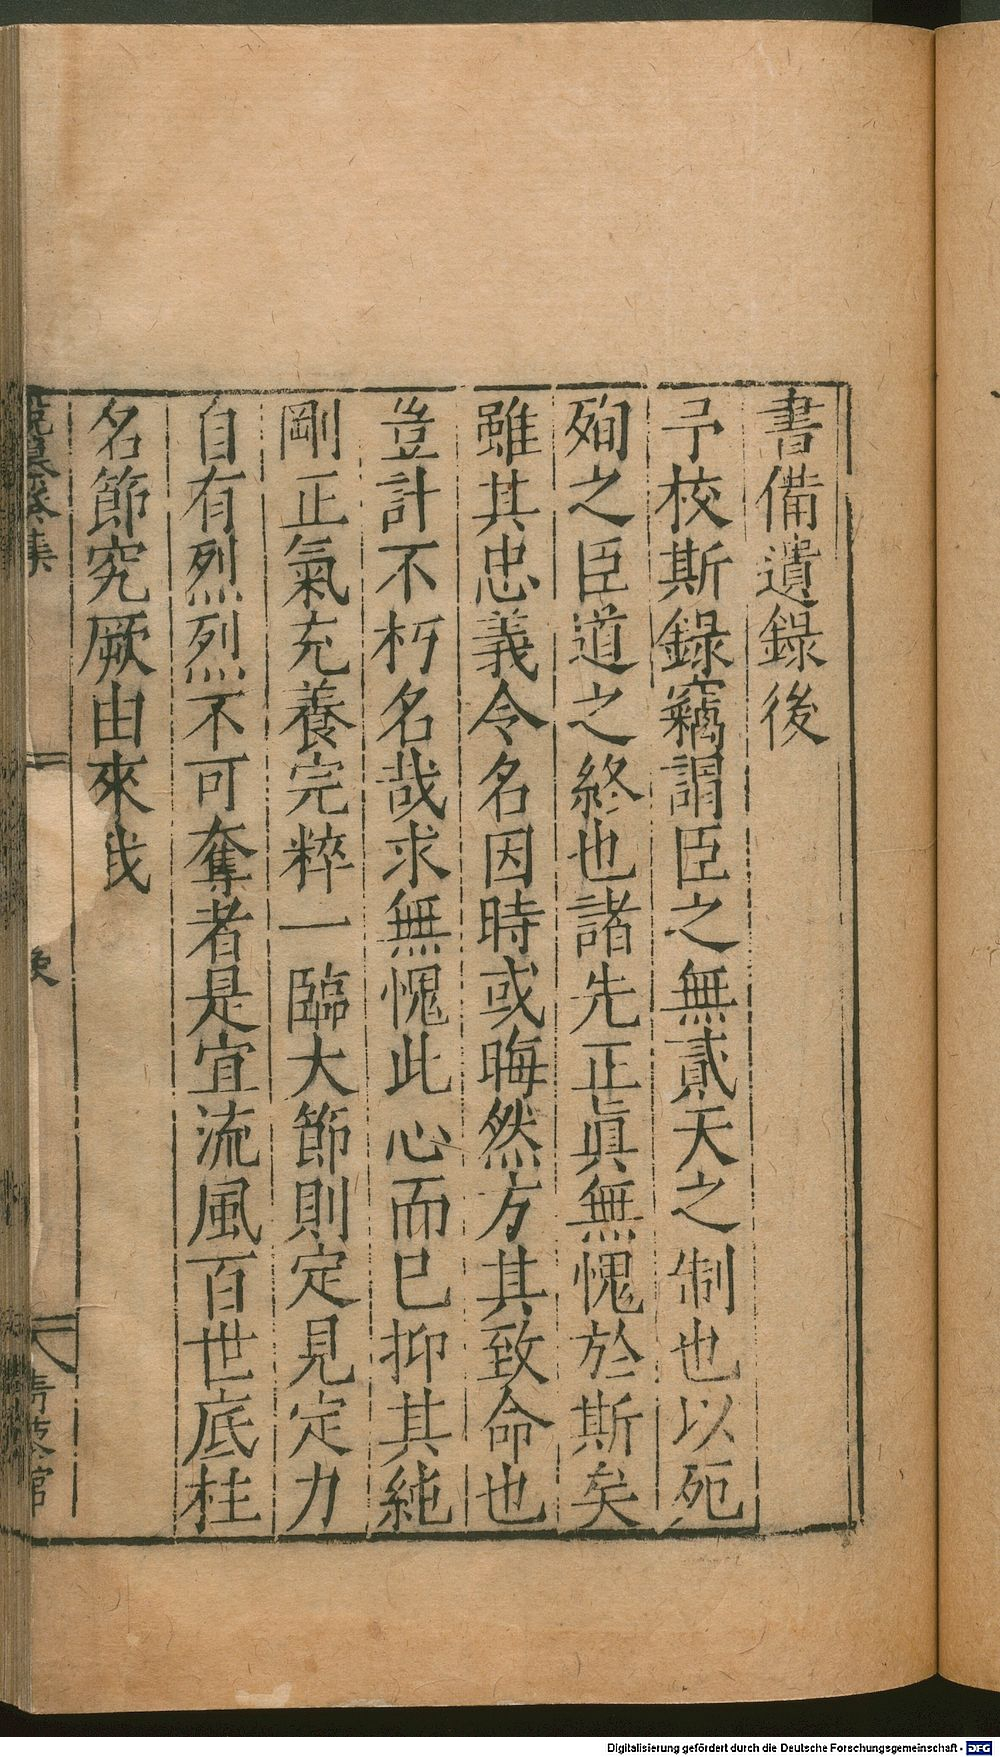 書備遺錄後
予校斯錄竊謂臣之無貳天之制也以死
殉之臣道之終也諸先正眞無愧於斯矣
雖其忠義令名因時或晦然方其致命也
豈計不朽名哉求無愧此心而已抑其純
剛正氣充養完粹一臨大節則定見定力
自有烈烈不可奪者是宜流風百世底柱
名節究厥由來哉
集
館
Digitalisierung gefördert durch die Deutsche Forschungsgemeinschaft - DFG